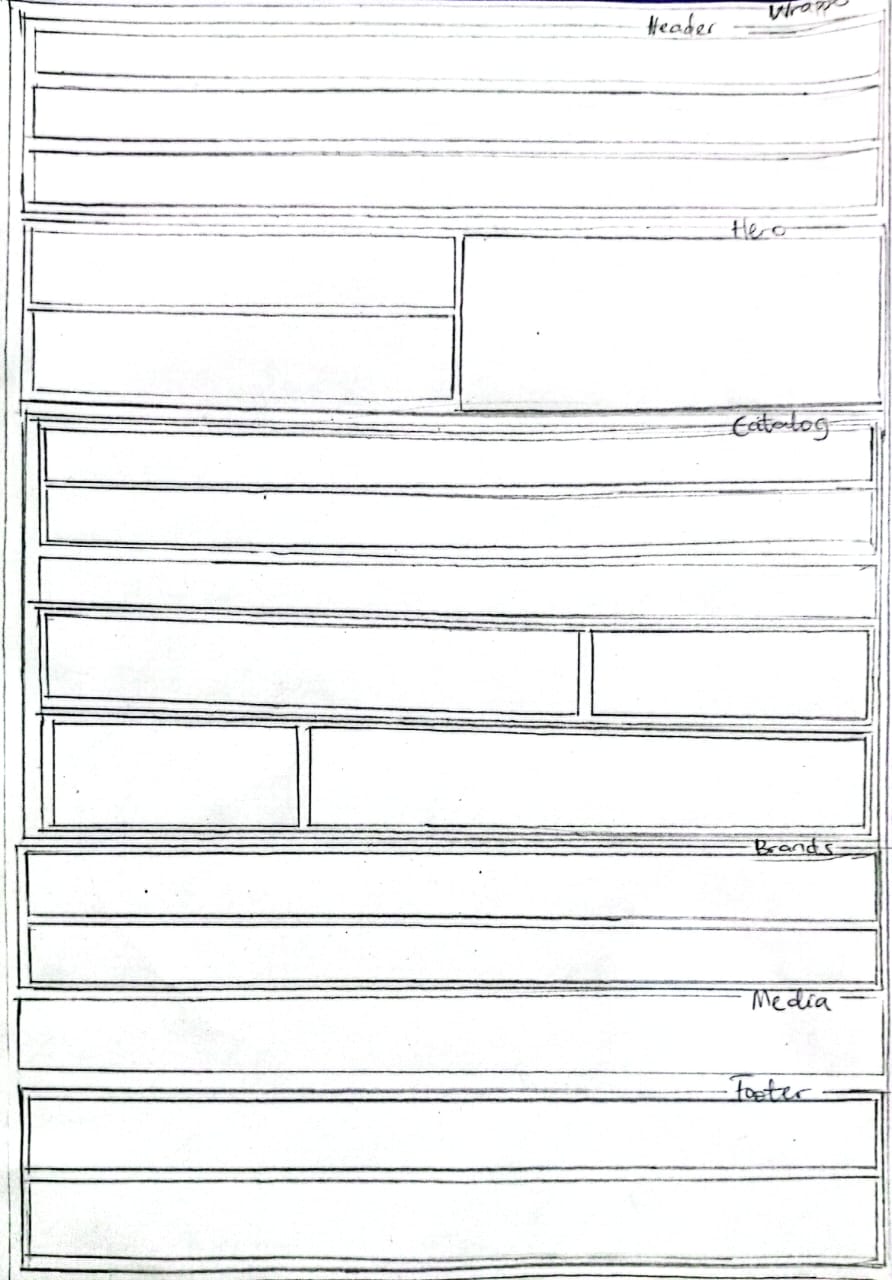 Header
Hero
Catalog
Brands
Media
Footer